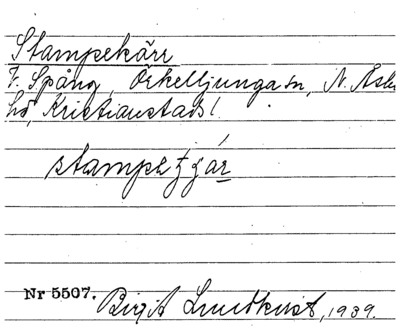 Stampekärr
V. Spång, Örkelljunga sn, N. Åsbo
hd, Kristianstads l.
stampetjär
Nr 5507. Birgit Lundkvist, 1939.